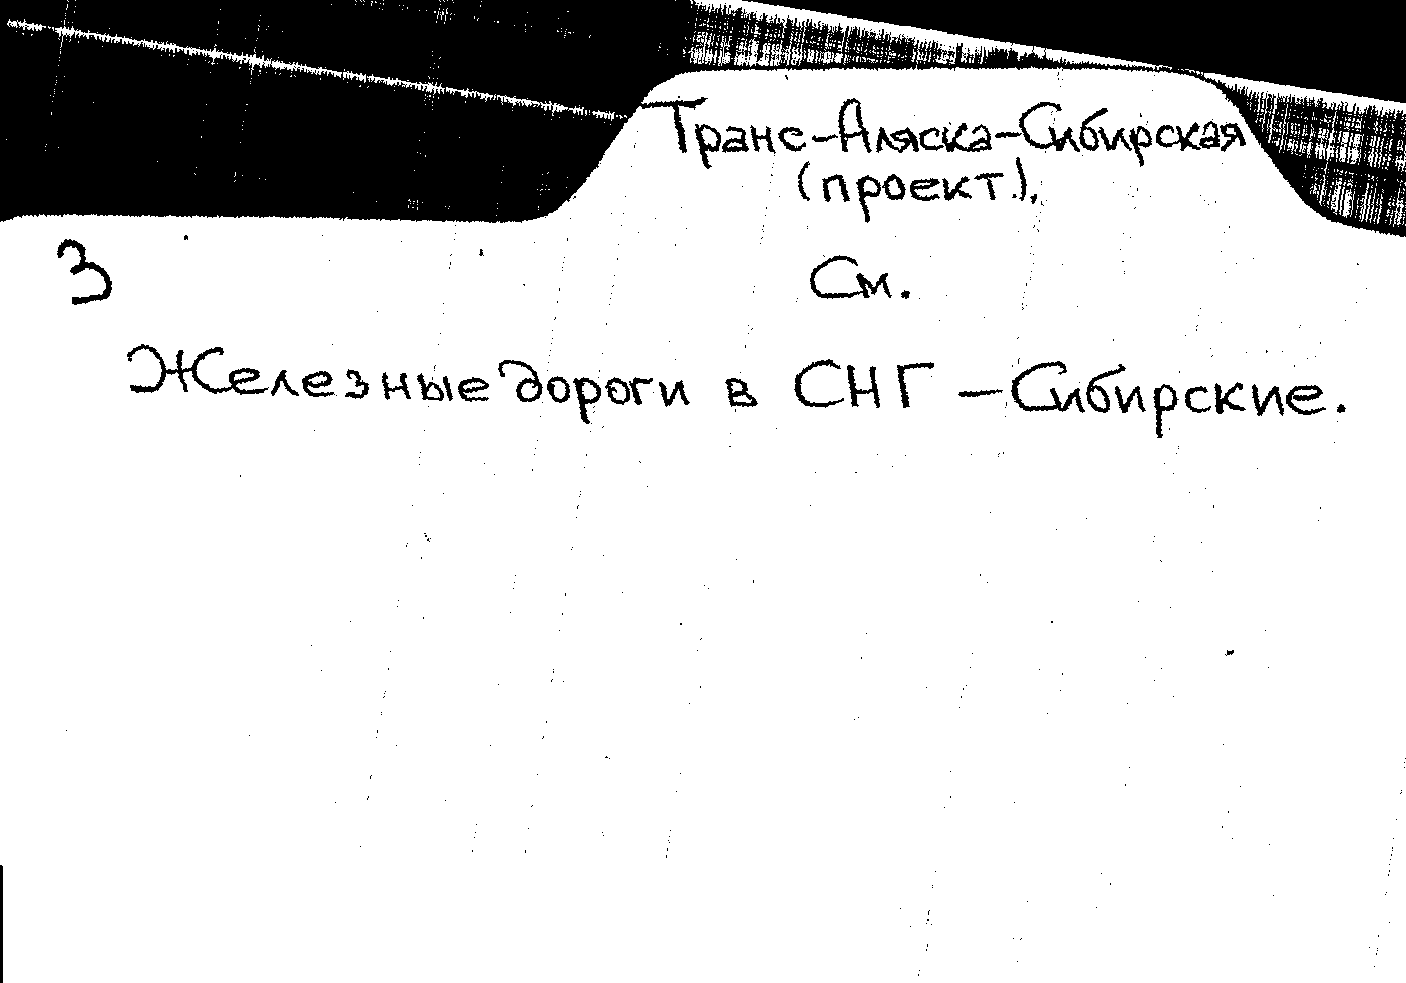 Транс-Аляска-Сибирская
(проект.),
З
См.
Железные дороги в СНГ – Сибирские.